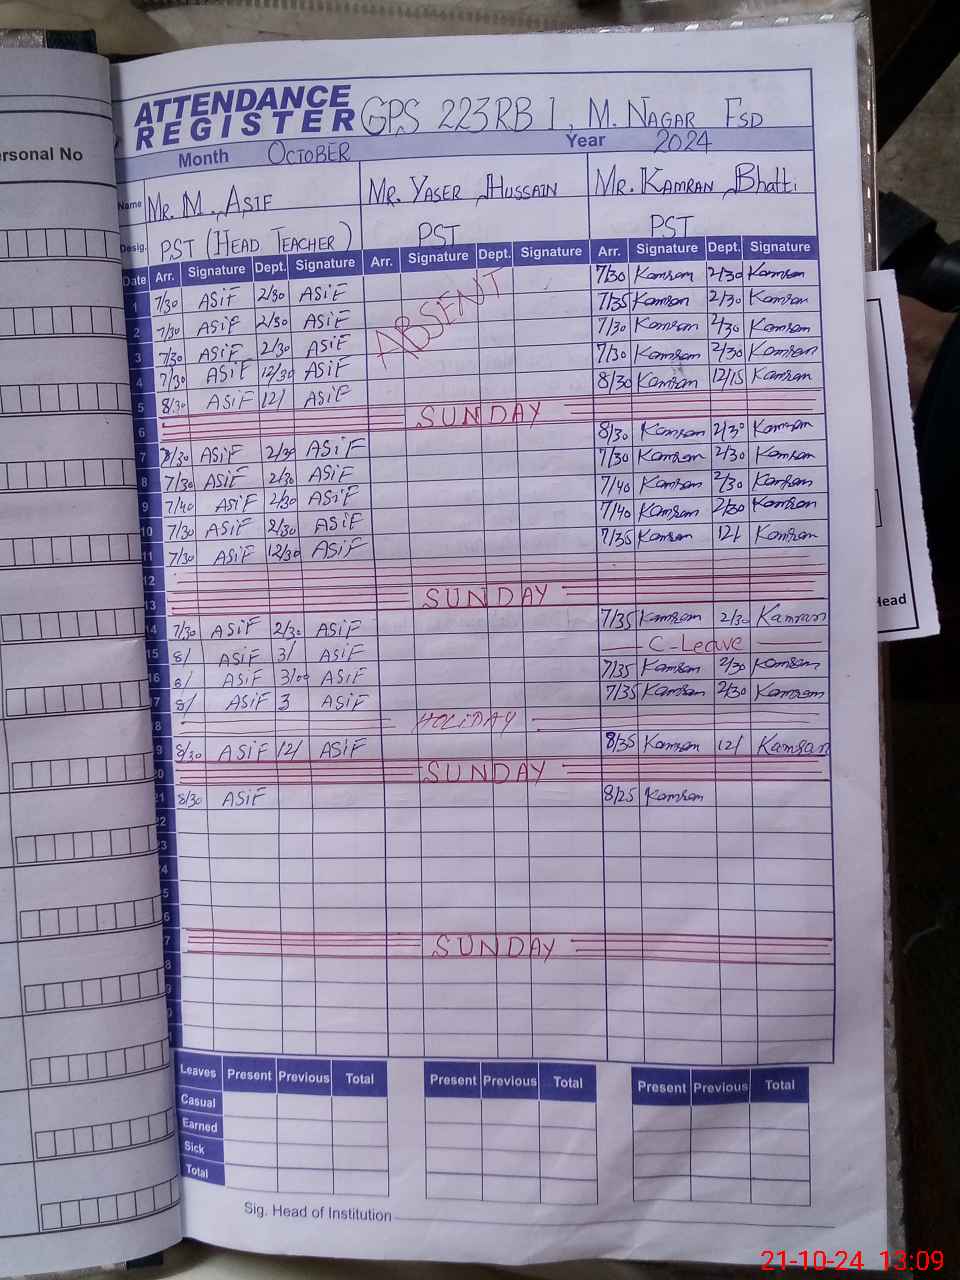 ersonal No
ATTENDANCE REGISTER GPS 223RB I, M. NAGAR FSD
Month OCTOBER Year 2024
Name MR. M. ASIF MR. YASER HUSSAIN MR. KAMRAN Bhatti
Desig. PST (HEAD TEACHER) PST PST
Date Arr. Signature Dept. Signature Arr. Signature Dept. Signature Arr. Signature Dept. Signature
1 7/30 ASiF 2/30 ASiF ABSENT 7/30 Kamran 2/30 Kamran
2 7/30 ASiF 2/30 ASiF 7/35 Kamran 2/30 Kamran
3 7/30 ASiF 2/30 ASiF 7/30 Kamran 2/30 Kamran
4 7/30 ASiF 12/30 ASiF 7/30 Kamran 2/30 Kamran
5 8/30 ASiF 12/ ASiF 8/30 Kamran 12/15 Kamran
6 SUNDAY
7 8/30 ASiF 2/30 ASiF 8/30 Kamran 2/30 Kamran
8 7/30 ASiF 2/30 ASiF 7/30 Kamran 2/30 Kamran
9 7/40 ASiF 2/30 ASiF 7/40 Kamran 2/30 Kamran
10 7/30 ASiF 2/30 ASiF 7/40 Kamran 2/30 Kamran
11 7/30 ASiF 12/30 ASiF 7/35 Kamran 12/ Kamran
12
13 SUNDAY
14 7/30 ASiF 2/30 ASiF 7/35 Kamran 2/30 Kamran
15 8/ ASiF 3/ ASiF C-Leave
16 8/ ASiF 3/00 ASiF 7/35 Kamran 2/30 Kamran
7 8/ ASiF 3 ASiF 7/35 Kamran 2/30 Kamran
8 HOLiDAY
9 8/30 ASiF 12/ ASiF 8/35 Kamran 12/ Kamran
20 SUNDAY
21 8/30 ASiF 8/25 Kamran
22
23
4
5
6
7 SUNDAY
8
9
0
1
Leaves Present Previous Total Present Previous Total Present Previous Total
Casual
Earned
Sick
Total
Sig. Head of Institution
Head
21-10-24 13:09